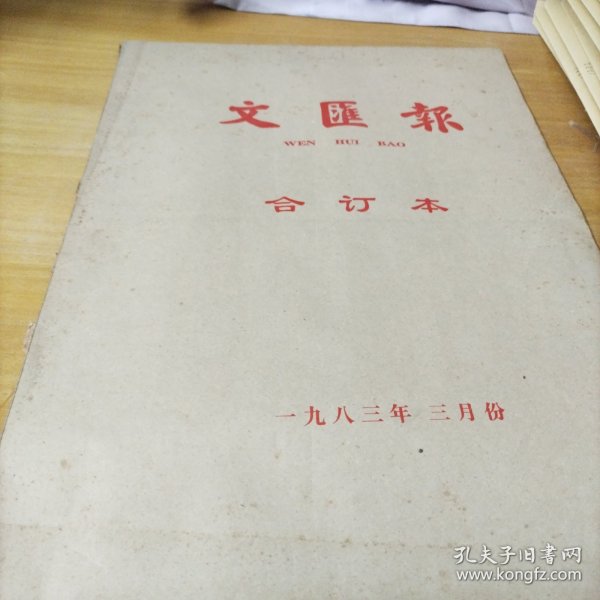 文匯報
WEN HUI BAO
合订本
一九八三年 三月份
孔夫子旧書网
www.kongfz.com